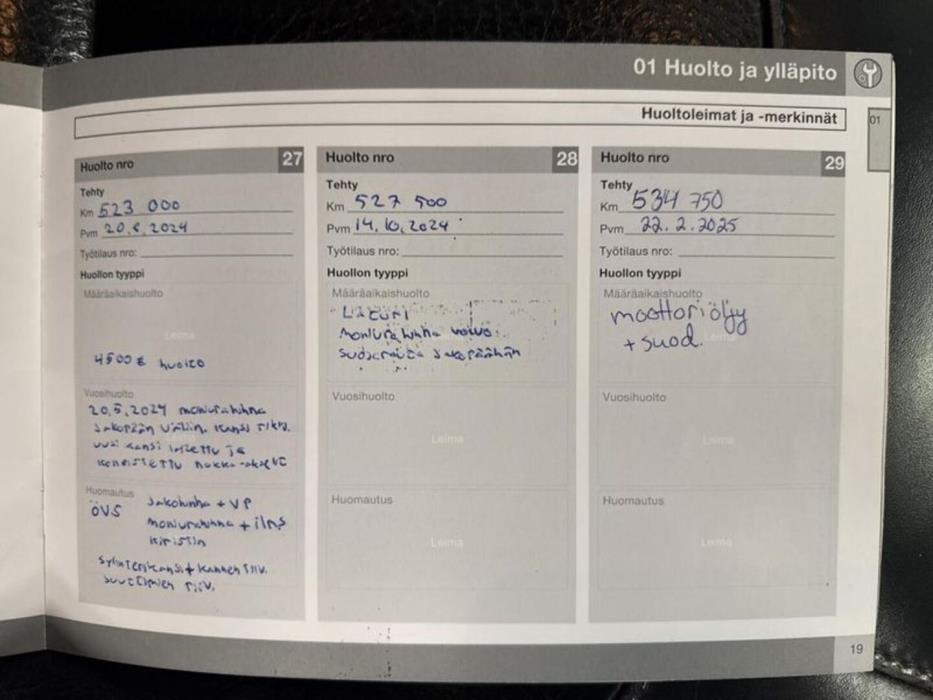 01 Huolto ja ylläpito
Huoltoleimat ja -merkinnät
01
Huolto nro 27
Tehty
Km 523 000
Pvm 20.6.2024
Työtilaus nro:
Huollon tyyppi
Määräaikaishuolto
Leima
4500 € huolto
Vuosihuolto
20.5.2024 moniurahihna
jakopään väliin. kansi rikki.
uusi kansi laitettu ja
koneistettu nokka-akselit
Huomautus
ÖVS jakohihna + VP
moniurahihna + ilms
kiristin
sylinterikansi + kannen tiiv.
suuttimien tiiv.
Huolto nro 28
Tehty
Km 527 500
Pvm 14.10.2024
Työtilaus nro:
Huollon tyyppi
Määräaikaishuolto
Laturi
moniurahihna volvo
jakopäähän
Vuosihuolto
Leima
Huomautus
Leima
Huolto nro 29
Tehty
Km 534 750
Pvm 22.2.2025
Työtilaus nro:
Huollon tyyppi
Määräaikaishuolto
moottoriöljy
+ suod.
Vuosihuolto
Leima
Huomautus
Leima
19